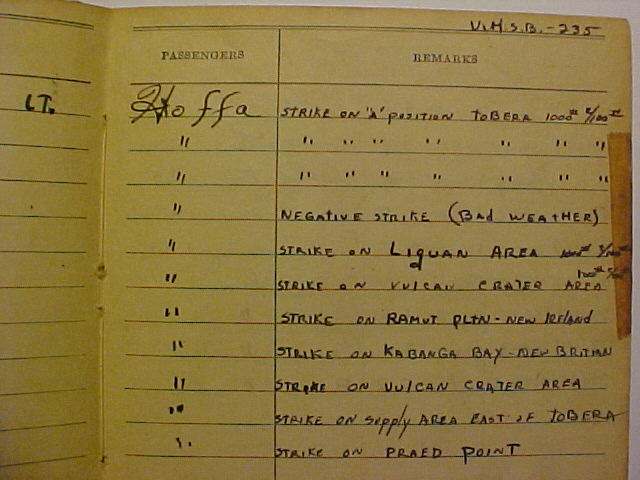 V.M.S.B.-235
PASSENGERS REMARKS
LT. Hoffa STRIKE ON 'A' POSITION TOBERA 1000#
" " " " " " " "
" " " " " " " "
" NEGATIVE STRIKE (BAD WEATHER)
" STRIKE ON LIQUAN AREA
" STRIKE ON VULCAN CRATER AREA
" STRIKE ON RAMUT PLTN-NEW IRELAND
" STRIKE ON KABANGA BAY-NEW BRITIAN
" STRIKE ON VULCAN CRATER AREA
" STRIKE ON SUPPLY AREA EAST OF TOBERA
" STRIKE ON PRAED POINT